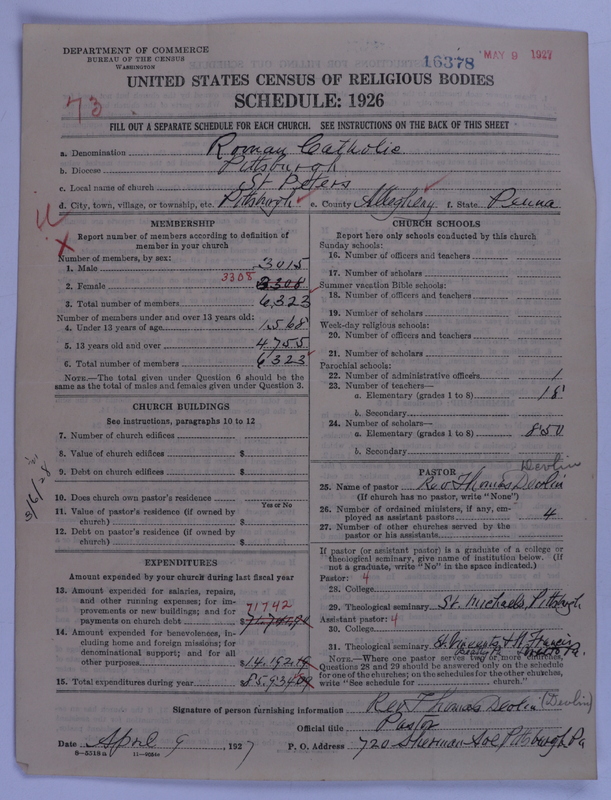 DEPARTMENT OF COMMERCE
BUREAU OF THE CENSUS
WASHINGTON
16378
MAY 9 1927
UNITED STATES CENSUS OF RELIGIOUS BODIES
SCHEDULE: 1926
73
FILL OUT A SEPARATE SCHEDULE FOR EACH CHURCH. SEE INSTRUCTIONS ON THE BACK OF THIS SHEET
a. Denomination Roman Catholic
b. Diocese Pittsburgh
c. Local name of church St Peters
d. City, town, village, or township, etc. Pittsburgh e. County Allegheny f. State Penna
MEMBERSHIP
Report number of members according to definition of
member in your church
Number of members, by sex:
1. Male 3015
2. Female 3308 3308
3. Total number of members 6,323
Number of members under and over 13 years old:
4. Under 13 years of age 1568
5. 13 years old and over 4755
6. Total number of members 6323
NOTE.—The total given under Question 6 should be the
same as the total of males and females given under Question 3.
CHURCH BUILDINGS
See instructions, paragraphs 10 to 12
7. Number of church edifices
8. Value of church edifices $
9. Debt on church edifices $
10. Does church own pastor's residence
Yes or No
11. Value of pastor's residence (if owned by
church) $
12. Debt on pastor's residence (if owned by
church) $
3/6/28
EXPENDITURES
Amount expended by your church during last fiscal year
13. Amount expended for salaries, repairs,
and other running expenses; for im-
provements or new buildings; and for
payments on church debt $ 71742
14. Amount expended for benevolences, in-
cluding home and foreign missions; for
denominational support; and for all
other purposes $ 14,192
15. Total expenditures during year $ 85,934
CHURCH SCHOOLS
Report here only schools conducted by this church
Sunday schools:
16. Number of officers and teachers
17. Number of scholars
Summer vacation Bible schools:
18. Number of officers and teachers
19. Number of scholars
Week-day religious schools:
20. Number of officers and teachers
21. Number of scholars
Parochial schools:
22. Number of administrative officers 1
23. Number of teachers—
a. Elementary (grades 1 to 8) 18
b. Secondary
24. Number of scholars—
a. Elementary (grades 1 to 8) 850
b. Secondary
PASTOR Devlin
25. Name of pastor Rev Thomas Devlin
(If church has no pastor, write "None")
26. Number of ordained ministers, if any, em-
ployed as assistant pastors 4
27. Number of other churches served by the
pastor or his assistants
If pastor (or assistant pastor) is a graduate of a college or
theological seminary, give name of institution below. (If
not a graduate, write "No" in the space indicated.)
Pastor: 4
28. College
29. Theological seminary St. Michaels, Pittsburgh
Assistant pastor: 4
30. College
31. Theological seminary St Vincents & St Francis
NOTE.—Where one pastor serves two or more churches,
Questions 28 and 29 should be answered only on the schedule
for one of the churches; on the schedules for the other churches,
write "See schedule for church."
Signature of person furnishing information Rev Thomas Devlin (Devlin)
Official title Pastor
Date April 9, 1927 P. O. Address 720 Sherman Ave Pittsburgh, Pa
8—5318a